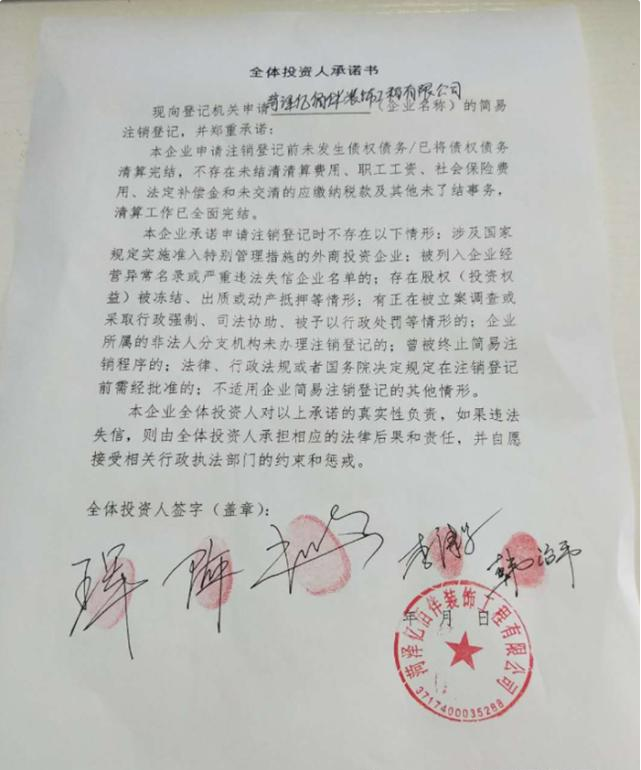 全体投资人承诺书
现向登记机关申请菏泽亿佰伴装饰工程有限公司(企业名称)的简易
注销登记,并郑重承诺:
本企业申请注销登记前未发生债权债务/已将债权债务
清算完结,不存在未结清清算费用、职工工资、社会保险费
用、法定补偿金和未交清的应缴纳税款及其他未了结事务,
清算工作已全面完结。
本企业承诺申请注销登记时不存在以下情形:涉及国家
规定实施准入特别管理措施的外商投资企业;被列入企业经
营异常名录或严重违法失信企业名单的;存在股权(投资权
益)被冻结、出质或动产抵押等情形;有正在被立案调查或
采取行政强制、司法协助、被予以行政处罚等情形的;企业
所属的非法人分支机构未办理注销登记的;曾被终止简易注
销程序的;法律、行政法规或者国务院决定规定在注销登记
前需经批准的;不适用企业简易注销登记的其他情形。
本企业全体投资人对以上承诺的真实性负责,如果违法
失信,则由全体投资人承担相应的法律后果和责任,并自愿
接受相关行政执法部门的约束和惩戒。
全体投资人签字(盖章):
韩治平
年 月 日
菏泽亿佰伴装饰工程有限公司
3717400035288